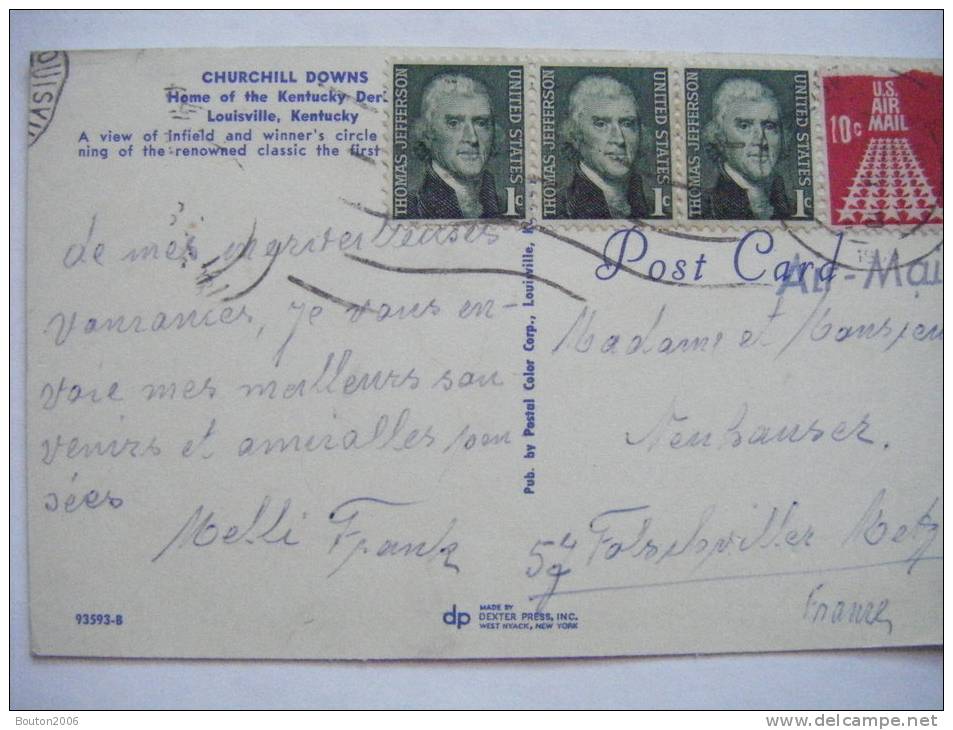 OUISVI
CHURCHILL DOWNS
Home of the Kentucky Der
Louisville, Kentucky
A view of infield and winner's circle
ning of the renowned classic the first
THOMAS JEFFERSON
UNITED STATES
1c
THOMAS JEFFERSON
UNITED STATES
1c
THOMAS JEFFERSON
UNITED STATES
1c
U.S.
AIR
MAIL
10c
Post Card
Air-Mai
de mes merveilleuses
vanrances, je vous en-
voie mes meilleurs sou
venirs et amicalles pen
sées
Melli Frank
Pub. by Postal Color Corp., Louisville, K
Madame et Monsieu
Neuhauser.
57 Folschviller Metz
France
93593-B
dp
MADE BY
DEXTER PRESS, INC.
WEST NYACK, NEW YORK
Bouton2006
www.delcampe.net